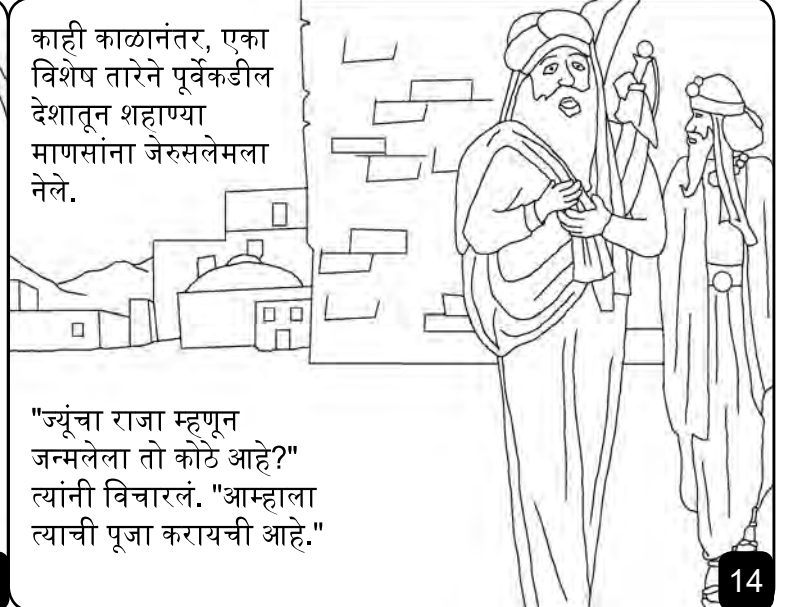 काही काळानंतर, एका
विशेष तारेने पूर्वेकडील
देशातून शहाण्या
माणसांना जेरुसलेमला
नेले.
"ज्यूंचा राजा म्हणून
जन्मलेला तो कोठे आहे?"
त्यांनी विचारलं. "आम्हाला
त्याची पूजा करायची आहे."
14